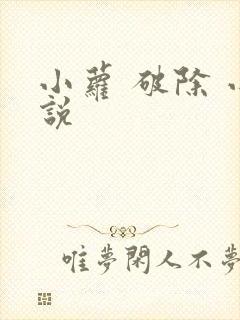 小蘿 破除
說
唯夢閑人不夢